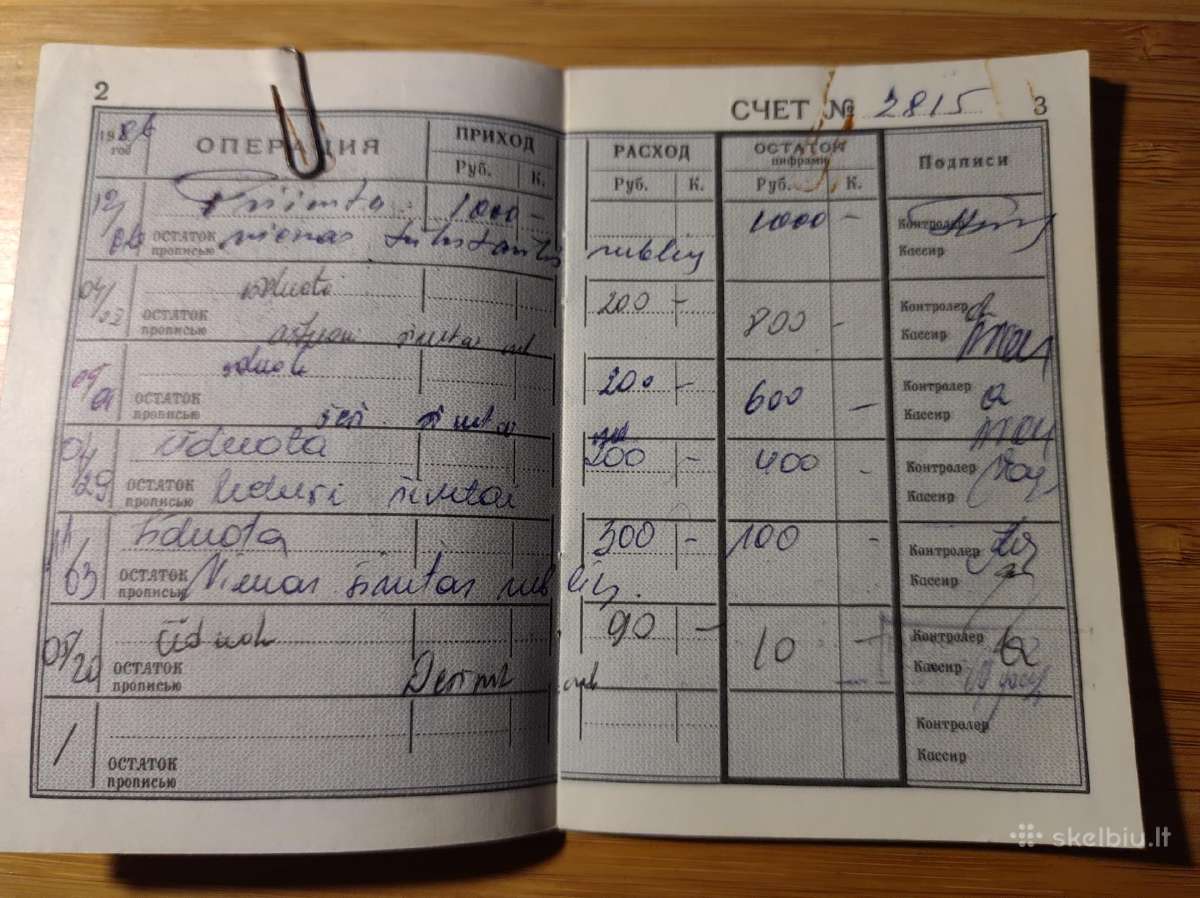 2
СЧЕТ № 2815 3
19 86 год ОПЕРАЦИЯ ПРИХОД РАСХОД ОСТАТОК цифрами Подписи
Руб. К. Руб. К. Руб. К.
12/ Priimta 1000 - 1000 - Контролер
ОСТАТОК прописью vienas tūkstantis rublių Кассир
04/ išduota 200 - 800 - Контролер
03 ОСТАТОК прописью aštuoni šimtai rub Кассир
išduota 200 - 600 - Контролер
ОСТАТОК прописью šeši šimtai Кассир
04/ išduota 200 - 400 - Контролер
29 ОСТАТОК прописью keturi šimtai Кассир
išduota 300 - 100 - Контролер
ОСТАТОК прописью Vienas šimtas rublių. Кассир
05/ išduota 90 - 10 - Контролер
20 ОСТАТОК прописью Dešimt rub Кассир
/ Контролер
ОСТАТОК прописью Кассир
skelbiu.lt